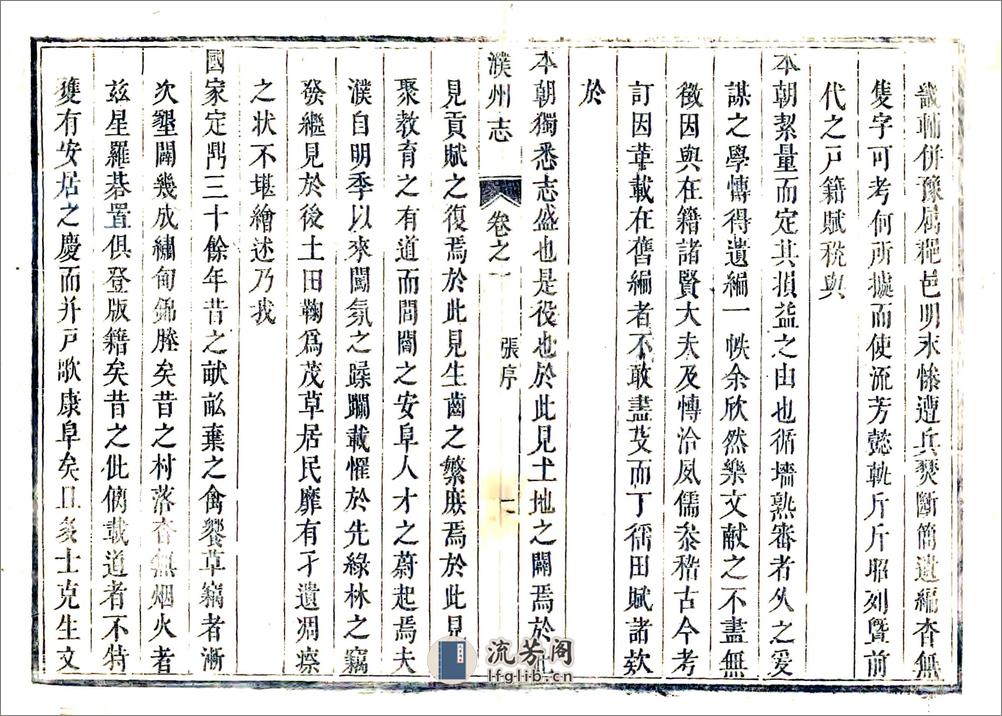 畿輔併豫属糧邑明末慘遭兵燹斷簡遺編杳無
隻字可考何所據而使流芳懿軌斤斤昭列暨前
代之戸籍賦稅與
本朝絜量而定其損益之由也循墻熟審者久之爰
謀之學博得遺編一帙余欣然樂文献之不盡無
徵因與在籍諸賢大夫及愽洽夙儒叅稽古今考
訂因革載在舊編者不敢盡芟而丁徭田賦諸欵
於
本朝獨悉志盛也是役也於此見土地之闢焉於
濮州志 卷之一 張序 二
見貢賦之復焉於此見生齒之繁庶焉於此見
聚教育之有道而閭閻之安阜人才之蔚起焉夫
濮自明季以來闖氛之蹂躪載懼於先綠林之竊
發繼見於後土田鞠爲茂草居民靡有孑遺凋瘵
之状不堪繪述乃我
國家定鼎三十餘年昔之畎畝棄之禽饗草竊者漸
次墾闢幾成繡甸錦塍矣昔之村落杳無烟火者
兹星羅碁置俱登版籍矣昔之仳俩載道者不特
獲有安居之慶而并戸歌康阜矣且多士克生文
流芳阁
lfglib.cn